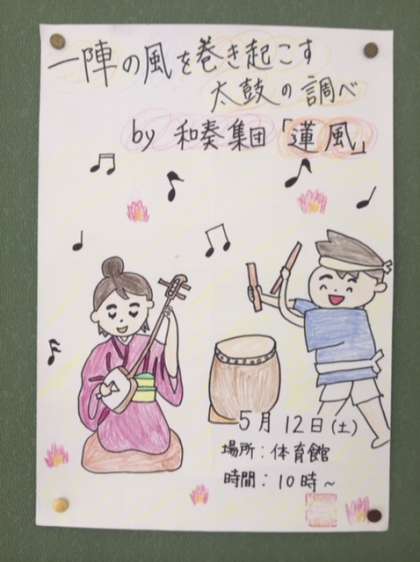 一陣の風を巻き起こす
太鼓の調べ
by 和奏集団「蓮風」
5月12日(土)
場所:体育館
時間:10時~